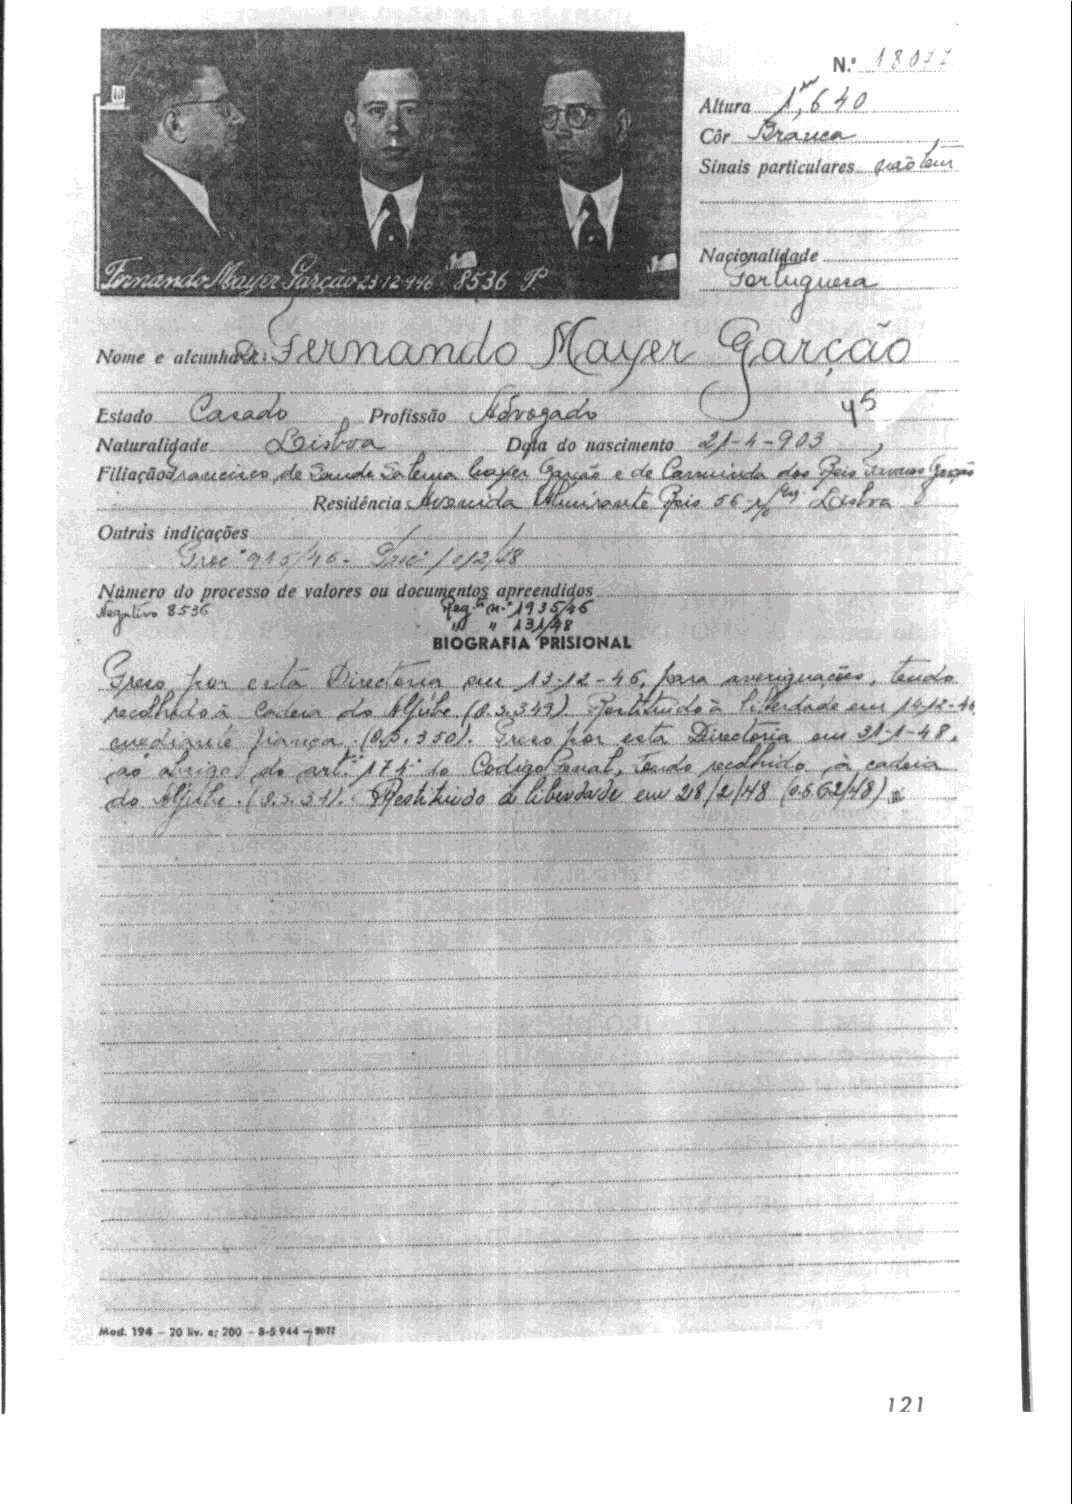 N.º 18077
Altura 1,m640
Côr Branca
Sinais particulares não tem
Nacionalidade
Portuguesa
Fernando Mayer Garção 23-12-946 8536 P.
Nome e alcunha Fernando Mayer Garção
45
Estado Casado Profissão Advogado
Naturalidade Lisboa Data do nascimento 21-4-903
Filiação Francisco de Sande Salema Mayer Garção e de Carminda dos Reis Garção
Residência Avenida Almirante Reis 56-r/ Lisboa
Outras indicações
Procº 915/46 - Procº
Número do processo de valores ou documentos apreendidos
Negativo 8536 Reg.to n.º 1935/46
" " 131/48
BIOGRAFIA PRISIONAL
Preso por esta Directoria em 13-12-46, para averiguações, tendo
recolhido à cadeia do Aljube (O.S.349) Restituido à liberdade em 14-12-46
mediante fiança (O.S.350). Preso por esta Directoria em 31-1-48,
ao abrigo do artº 174º do Codigo Penal, tendo recolhido à cadeia
do Aljube. (O.S.31). Restituido à liberdade em 28/2/48 (O.S62/48)
Mod. 194 - 20 liv. a; 200 - 8-5 944
121